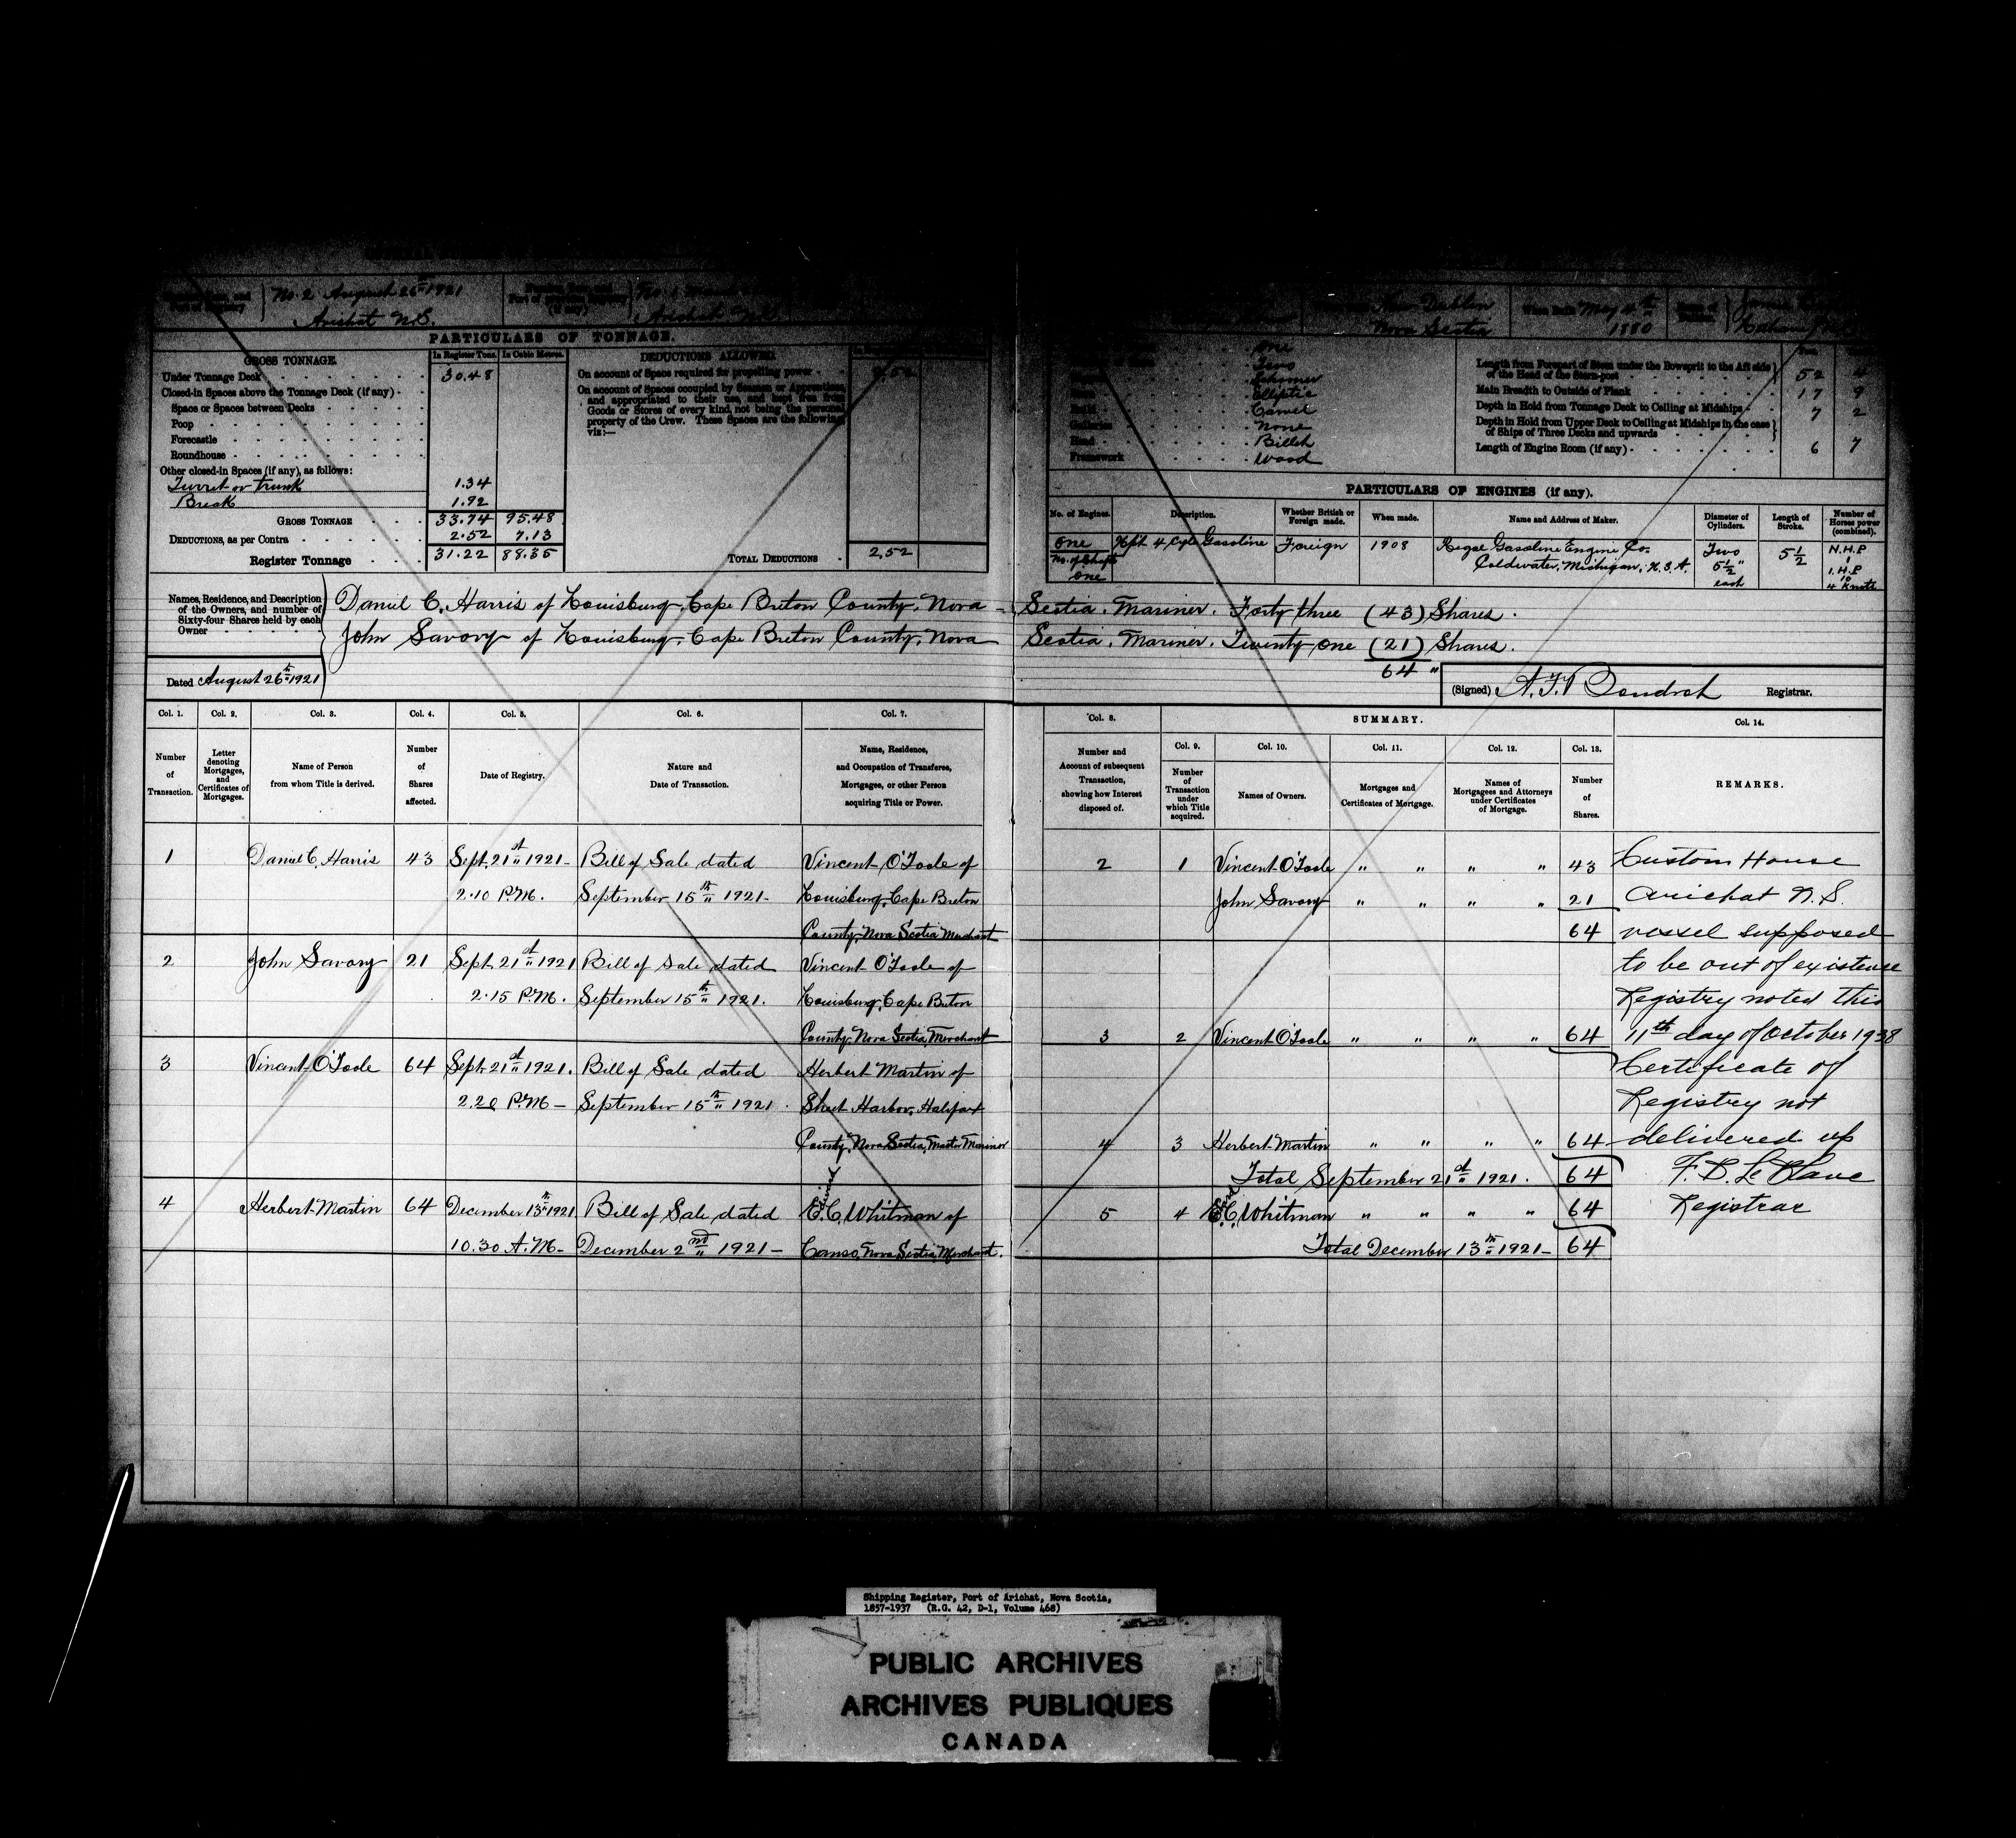 No. 2 August 26th 1921
Arichat N.S.
Arichat N.S.
PARTICULARS OF TONNAGE.
GROSS TONNAGE. In Register Tons. In Cubic Metres.
Under Tonnage Deck 30.48
Closed-in Spaces above the Tonnage Deck (if any)
Space or Spaces between Decks
Poop
Forecastle
Roundhouse
Other closed-in Spaces (if any), as follows:
Turret or trunk 1.34
Break 1.92
GROSS TONNAGE 33.74 95.48
DEDUCTIONS, as per Contra 2.52 7.13
Register Tonnage 31.22 88.35
DEDUCTIONS ALLOWED.
On account of Space required for propelling power 2.52
On account of Spaces occupied by Seamen or Apprentices,
and appropriated to their use, and kept free from
Goods or Stores of every kind, not being the personal
property of the Crew. These Spaces are the following,
viz:—
TOTAL DEDUCTIONS 2.52
Dublin
Nova Scotia
When Built May 4th
1880
One
Two
Schooner
Elliptic
Carvel
Galleries None
Head Billet
Framework Wood
Length from Forepart of Stem under the Bowsprit to the Aft side
of the Head of the Stern-post 52 4
Main Breadth to Outside of Plank 17 9
Depth in Hold from Tonnage Deck to Ceiling at Midships 7 2
Depth in Hold from Upper Deck to Ceiling at Midships in the case
of Ships of Three Decks and upwards
Length of Engine Room (if any) 6 7
PARTICULARS OF ENGINES (if any).
No. of Engines. Description. Whether British or Foreign made. When made. Name and Address of Maker. Diameter of Cylinders. Length of Stroke. Number of Horses power (combined).
One 4 Cycle Gasoline Foreign 1908 Regal Gasoline Engine Co. Two 5½ N.H.P
No. of Shafts Coldwater, Michigan, U.S.A. 5½" 1
one each I.H.P
10
4 Knots
Names, Residence, and Description
of the Owners, and number of
Sixty-four Shares held by each
Owner
Daniel C. Harris of Louisburg, Cape Breton County, Nova Scotia. Mariner. Forty three (43) Shares.
John Savory of Louisburg, Cape Breton County, Nova Scotia. Mariner. Twenty one (21) Shares.
64 "
Dated August 26th 1921
(Signed) Registrar.
Col. 1. Col. 2. Col. 3. Col. 4. Col. 5. Col. 6. Col. 7.
Number of Transaction. Letter denoting Mortgages, and Certificates of Mortgages. Name of Person from whom Title is derived. Number of Shares affected. Date of Registry. Nature and Date of Transaction. Name, Residence, and Occupation of Transferee, Mortgagee, or other Person acquiring Title or Power.
1 Daniel C. Harris 43 Sept. 21st 1921 Bill of Sale dated Vincent O'Toole of
2.10 P.M. September 15th 1921 Louisburg, Cape Breton
County, Nova Scotia Merchant
2 John Savory 21 Sept. 21st 1921 Bill of Sale dated Vincent O'Toole of
2.15 P.M. September 15th 1921. Louisburg, Cape Breton
County, Nova Scotia, Merchant
3 Vincent O'Toole 64 Sept. 21st 1921. Bill of Sale dated Herbert Martin of
2.20 P.M. September 15th 1921. Sheet Harbor, Halifax
County, Nova Scotia, Master Mariner
4 Herbert Martin 64 December 13th 1921. Bill of Sale dated E.C. Whitman of
10.30 A.M. December 2nd 1921 Canso, Nova Scotia, Merchant.
Col. 8. SUMMARY. Col. 14.
Col. 9. Col. 10. Col. 11. Col. 12. Col. 13.
Number and Account of subsequent Transaction, showing how Interest disposed of. Number of Transaction under which Title acquired. Names of Owners. Mortgages and Certificates of Mortgage. Names of Mortgagees and Attorneys under Certificates of Mortgage. Number of Shares. REMARKS.
2 1 Vincent O'Toole " " " " 43
John Savory " " " " 21
64
3 2 Vincent O'Toole " " " " 64
4 3 Herbert Martin " " " " 64
Total September 21st 1921. 64
5 4 E.C. Whitman " " " " 64
Total December 13th 1921 64
Custom House
Arichat N.S.
vessel supposed
to be out of existence
Registry noted this
11th day of October 1938
Certificate of
Registry not
delivered up
F. D. Le Blanc
Registrar
Shipping Register, Port of Arichat, Nova Scotia,
1857-1937 (R.G. 42, D-1, Volume 468)
PUBLIC ARCHIVES
ARCHIVES PUBLIQUES
CANADA